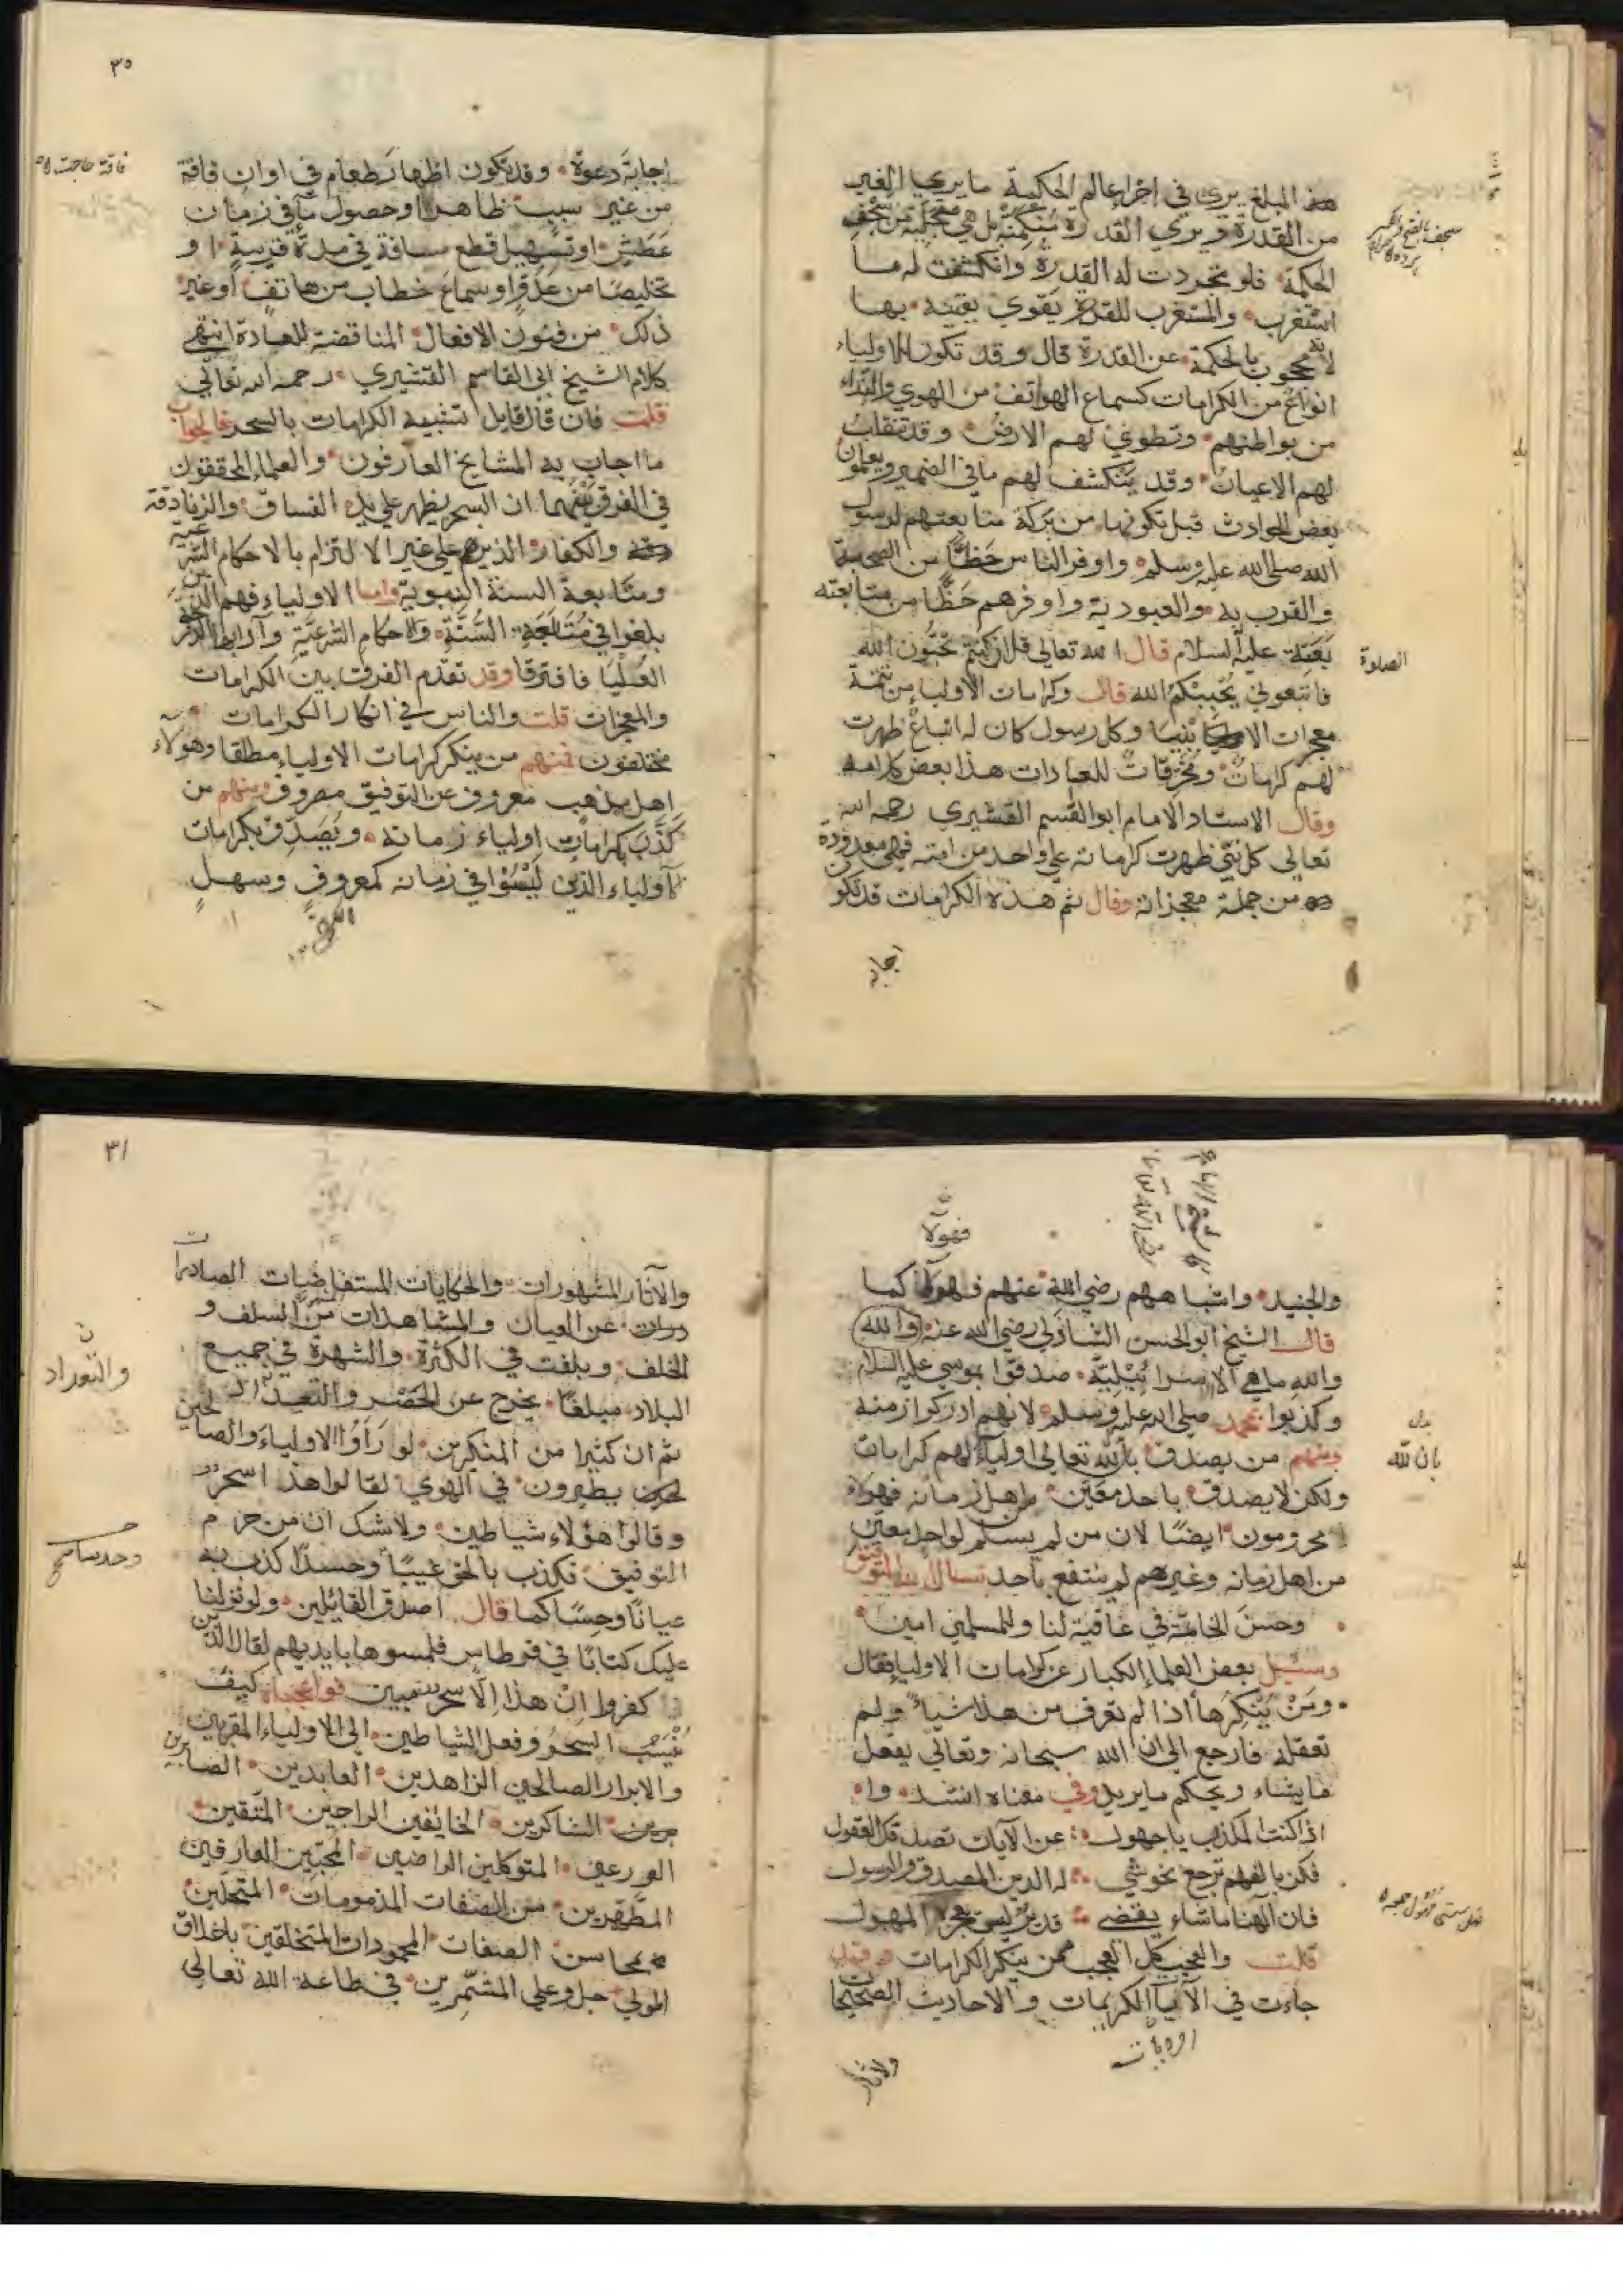 هذا المبلغ يري في اجراء عالم الحكمة ما يري الغير
من القدرة ويري القدرة متحلية من سجف
الحكمة فلو تجردت له القدرة وانكشفت له ما
استغرب والمستغرب للقدرة يقوي يقينه بها
لانه محجوب بالحكمة عن القدرة قال وقد تكون للاولياء
انواع من الكرامات كسماع الهواتف من الهوي والنداء
من بواطنهم وتطوي لهم الارض وقد تنقلب
لهم الاعيان وقد ينكشف لهم ما في الضمير ويعلمون
بعض الحوادث قبل تكونها من بركة متابعتهم لرسول
الله صلي الله عليه وسلم واوفر الناس حظا من الصحبة
والقرب به والعبودية واوفرهم حظا من متابعته
عليه السلام قال الله تعالي قل ان كنتم تحبون الله
الصلوة
فاتبعوني يحببكم الله قال وكرامات الاولياء من تتمة
معجزات الانبيا وكل رسول كان له اتباع ظهرت
لهم كرامات ومخرقات للعادات هذا بعض كلامه
وقال الاستاد الامام ابو القسم القشيري رحمه الله
تعالي كل نبي ظهرت كرامته علي واحد من امته فهي معدودة
من جملة معجزاته وقال ثم هذه الكرامات قد تكون
اجابه
٣٠
اجابة دعوة وقد تكون اظهار طعام في اوان فاقة
فاقة حاجت
من غير سبب ظاهر او حصول ماء في زمان
عطش او تسهيل قطع مسافة في مدة قريبة او
تخليصا من عدو او سماع خطاب من هاتف او غير
ذلك من فنون الافعال المناقضة للعادة انتهي
كلام الشيخ ابي القاسم القشيري رحمه الله تعالي
قلت فان قال قايل تشبيه الكرامات بالسحر فالجواب
ما اجاب به المشايخ العارفون والعلماء المحققون
في الفرق بينهما ان السحر يظهر علي يد الفساق والزنادقة
والكفار الذين هم علي غير الالتزام بالاحكام الشرعية
ومتابعة السنة النبوية واما الاولياء فهم الذين
بلغوا في متابعة السنة والاحكام الشرعية وآدابها الدرجة
العليا فافترقا وقد تقدم الفرق بين الكرامات
والمعجزات قلت والناس في انكار الكرامات
مختلفون فمنهم من ينكر كرامات الاولياء مطلقا وهولاء
اهل مذهب معروف عن التوفيق مصروف ومنهم من
كذب بكرامات اولياء زمانه ويصدق بكرامات
الاولياء الذين ليسوا في زمانه كمعروف وسهل
فهولا
والجنيد واشباههم رضي الله عنهم فهولاء كما
قال الشيخ ابو الحسن الشاذلي رضي الله عنه والله
والله ما هي الا اسرائيلية صدقوا بموسي عليه السلام
وكذبوا بمحمد صلي الله عليه وسلم لانهم ادركوا زمنه
ومنهم من يصدق بان لله تعالي اولياء لهم كرامات
بان لله
ولكن لا يصدق باحد معين من اهل زمانه فهولاء
محرومون ايضا لان من لم يسلم لواحد معين
من اهل زمانه وغيرهم لم ينتفع باحد نسال الله التوفيق
وحسن الخاتمة في عافية لنا وللمسلمين امين
وسئل بعض العلماء الكبار عن كرامات الاولياء فقال
ومن ينكرها اذا لم تعرف من هذا شياء ولم
تعقله فارجع الي ان الله سبحانه وتعالي يفعل
ما يشاء ويحكم ما يريد وفي معناه انشد وا
اذا كنت المكذب يا جهول عن الآيات تصدقك العقول
فكن بالفهم ترجع نحو شي له الدين المصدق والرسول
فان الهنا ما شاء يقضي المهول
قلت والعجب كل العجب ممن ينكر الكرامات وقد
جاءت في الآيات الكريمات والاحاديث الصحيحا
والاثار
٣١
والآثار المشهورات والحكايات المستفاضات الصادرات
عن العيان والمشاهدات من السلف و
الخلف وبلغت في الكثرة والشهرة في جميع
والتعداد
البلاد مبلغا يخرج عن الحصر والتعداد
ثم ان كثيرا من المنكرين لو رأوا الاولياء والصالحين
يطيرون في الهوي لقالوا هذا سحر
وقالوا هؤلاء شياطين ولا شك ان من حرم
التوفيق فكذب بالحق غيبا وحسدا كذب به
عيانا وحسا كما قال اصدق القائلين ولو نزلنا
عليك كتابا في قرطاس فلمسوها بايديهم لقال الذين
كفروا ان هذا الا سحر مبين فواعجباه كيف
نسب السحر وفعل الشياطين الي الاولياء المقربين
والابرار الصالحين الزاهدين العابدين الصابرين
الشاكرين الخائفين الراجين المتقين
الورعين المتوكلين الراضين المحبين العارفين
المطهرين من الصفات المذمومات المتحلين
بمحاسن الصفات المحمودات المتخلقين باخلاق
المولي جل وعلي المشمرين في طاعة الله تعالي